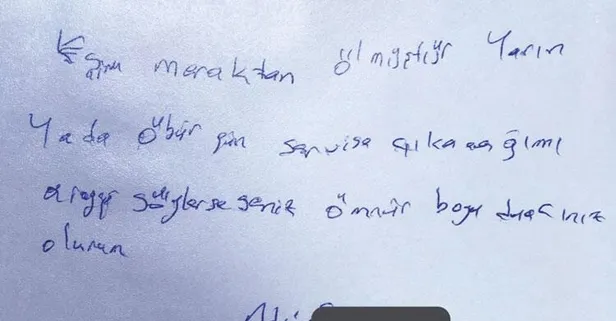 meraktan ölmüştür Yarın
Yada öbür gün servise çıkacağımı
söylerseseniz ömür boyu duacınız
olurum